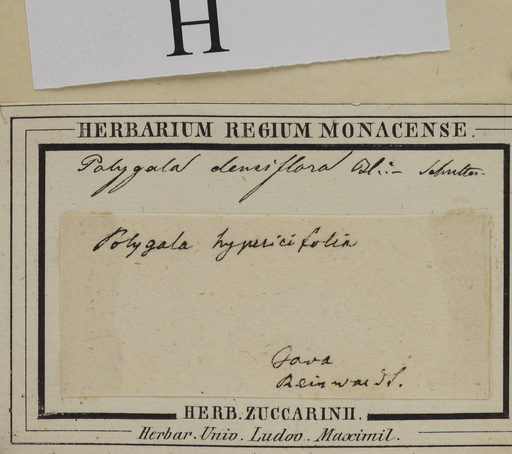 H
HERBARIUM REGIUM MONACENSE.
Polygala densiflora Bl.
Polygala hypericifolia
Java
Reinwardt.
HERB. ZUCCARINII.
Herbar. Univ. Ludov. Maximil.